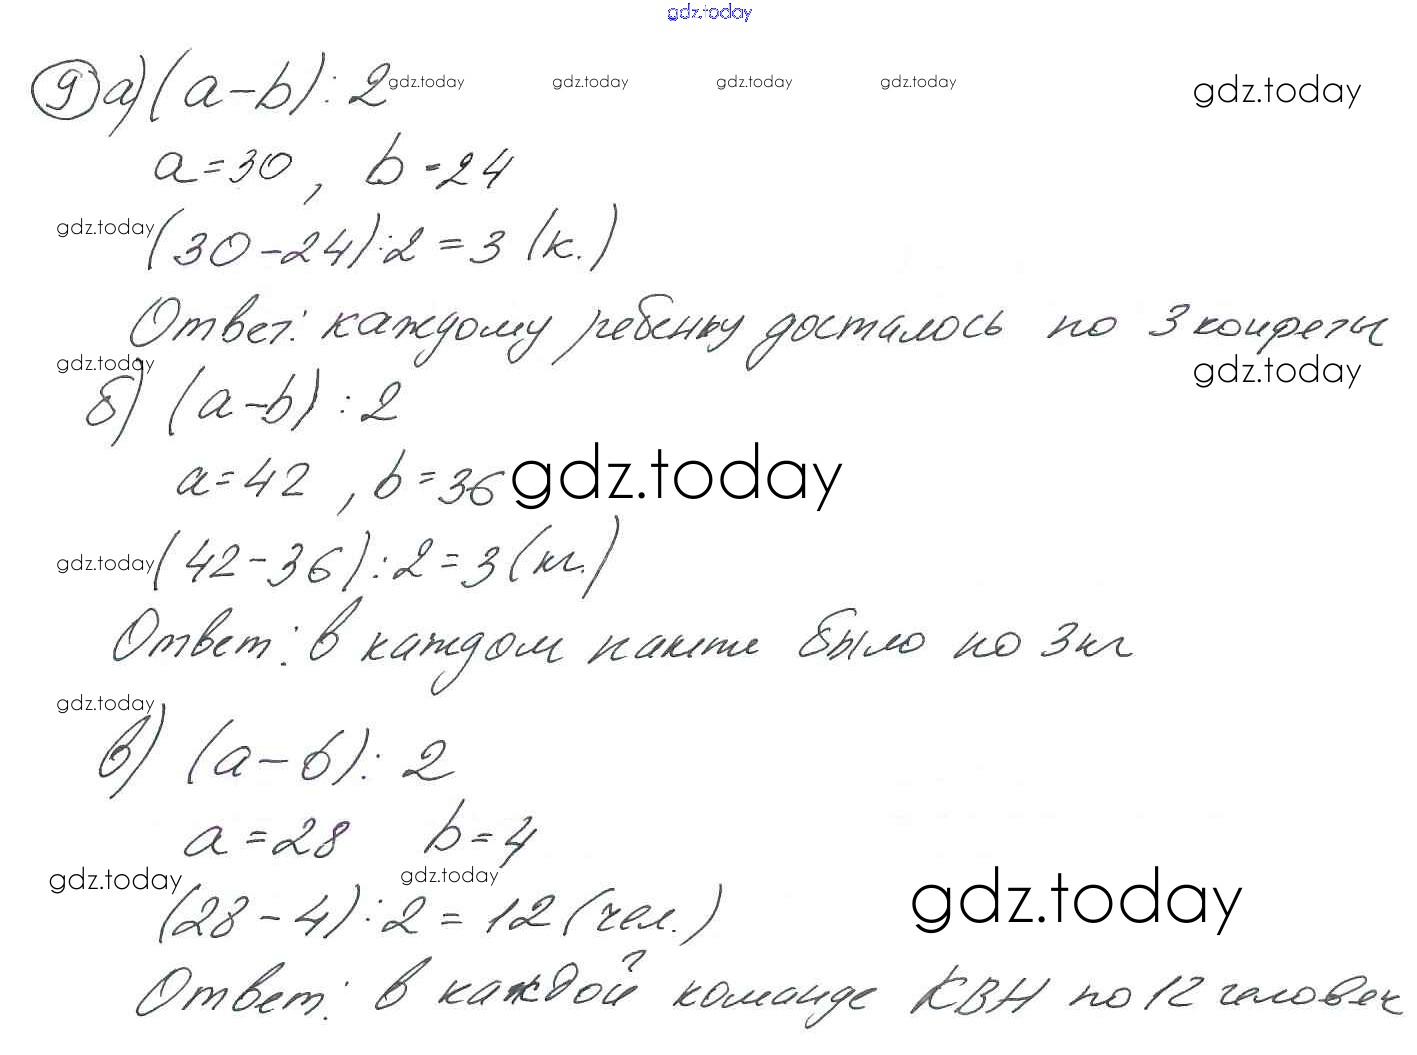 gdz.today
9 а) (a-b) : 2 gdz.today gdz.today gdz.today gdz.today gdz.today
a=30, b=24
gdz.today (30-24) : 2 = 3 (к.)
Ответ: каждому ребенку досталось по 3 конфеты
gdz.today gdz.today
б) (a-b) : 2
a=42, b=36 gdz.today
gdz.today (42-36) : 2 = 3 (кг.)
Ответ: в каждом пакете было по 3 кг
gdz.today
в) (a-b) : 2
a=28 b=4
gdz.today gdz.today gdz.today
(28-4) : 2 = 12 (чел.)
Ответ: в каждой команде КВН по 12 человек